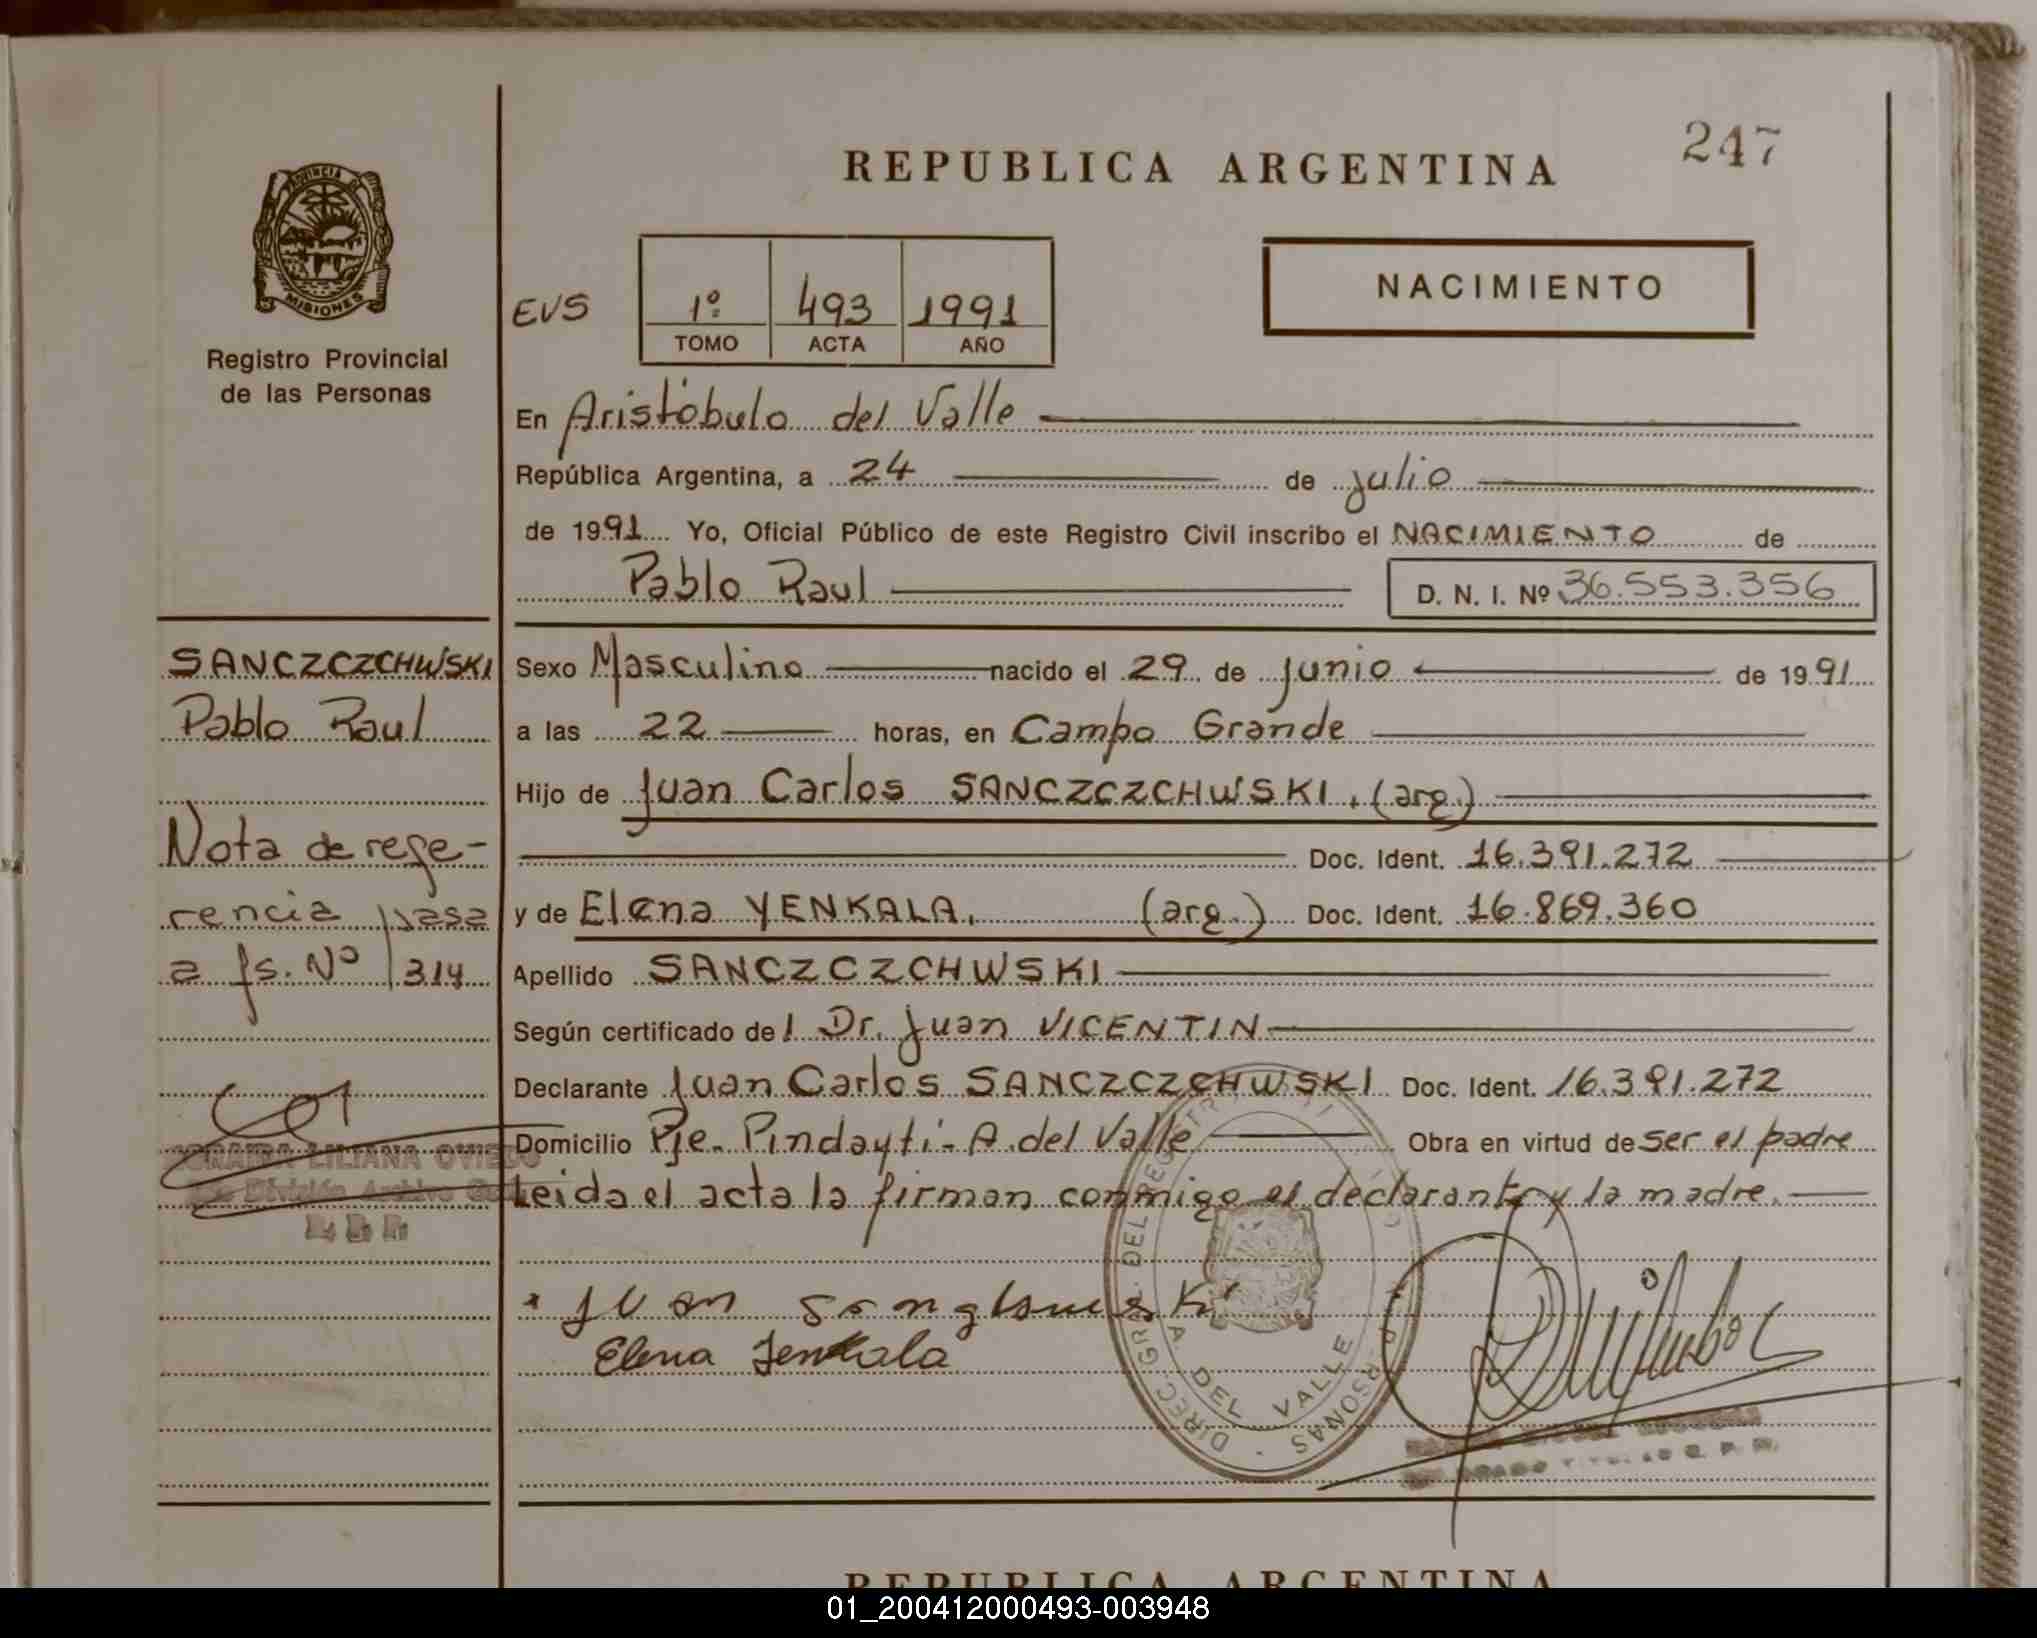 247
REPUBLICA ARGENTINA
PROVINCIA DE
MISIONES
Registro Provincial
de las Personas
EVS
1º 493 1991
TOMO ACTA AÑO
NACIMIENTO
En Aristóbulo del Valle
República Argentina, a 24 de julio
de 1991 Yo, Oficial Público de este Registro Civil inscribo el NACIMIENTO de
Pablo Raul D. N. I. Nº 36.553.356
SANCZCZCHWSKI
Pablo Raul
Nota de refe-
rencia pasa
a fs. Nº 314
LILIANA
División Archivo
Sexo Masculino nacido el 29 de junio de 1991
a las 22 horas, en Campo Grande
Hijo de Juan Carlos SANCZCZCHWSKI, (arg.)
Doc. Ident. 16.391.272
y de Elena YENKALA, (arg.) Doc. Ident. 16.869.360
Apellido SANCZCZCHWSKI
Según certificado del Dr. Juan VICENTIN
Declarante Juan Carlos SANCZCZCHWSKI Doc. Ident. 16.391.272
Domicilio Pje. Pindayti - A. del Valle Obra en virtud de ser el padre
Leida el acta la firman conmigo el declarante y la madre.
Juan
Elena Jenkala
DIREC. GRAL. DEL REGISTR PERSONAS
A. DEL VALLE
REPUBLICA ARGENTINA
01_200412000493-003948